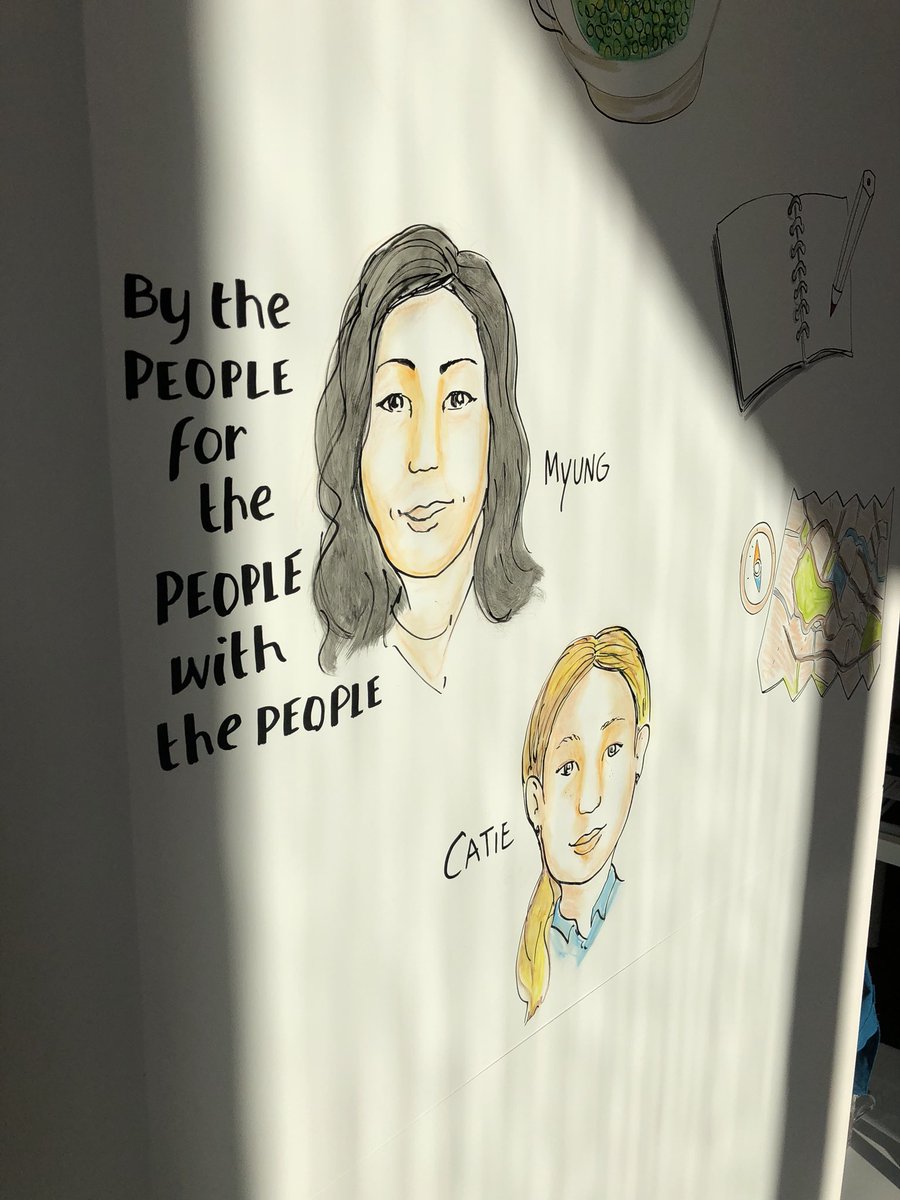 By the
PEOPLE
for
the
PEOPLE
with
the PEOPLE
MYUNG
CATIE